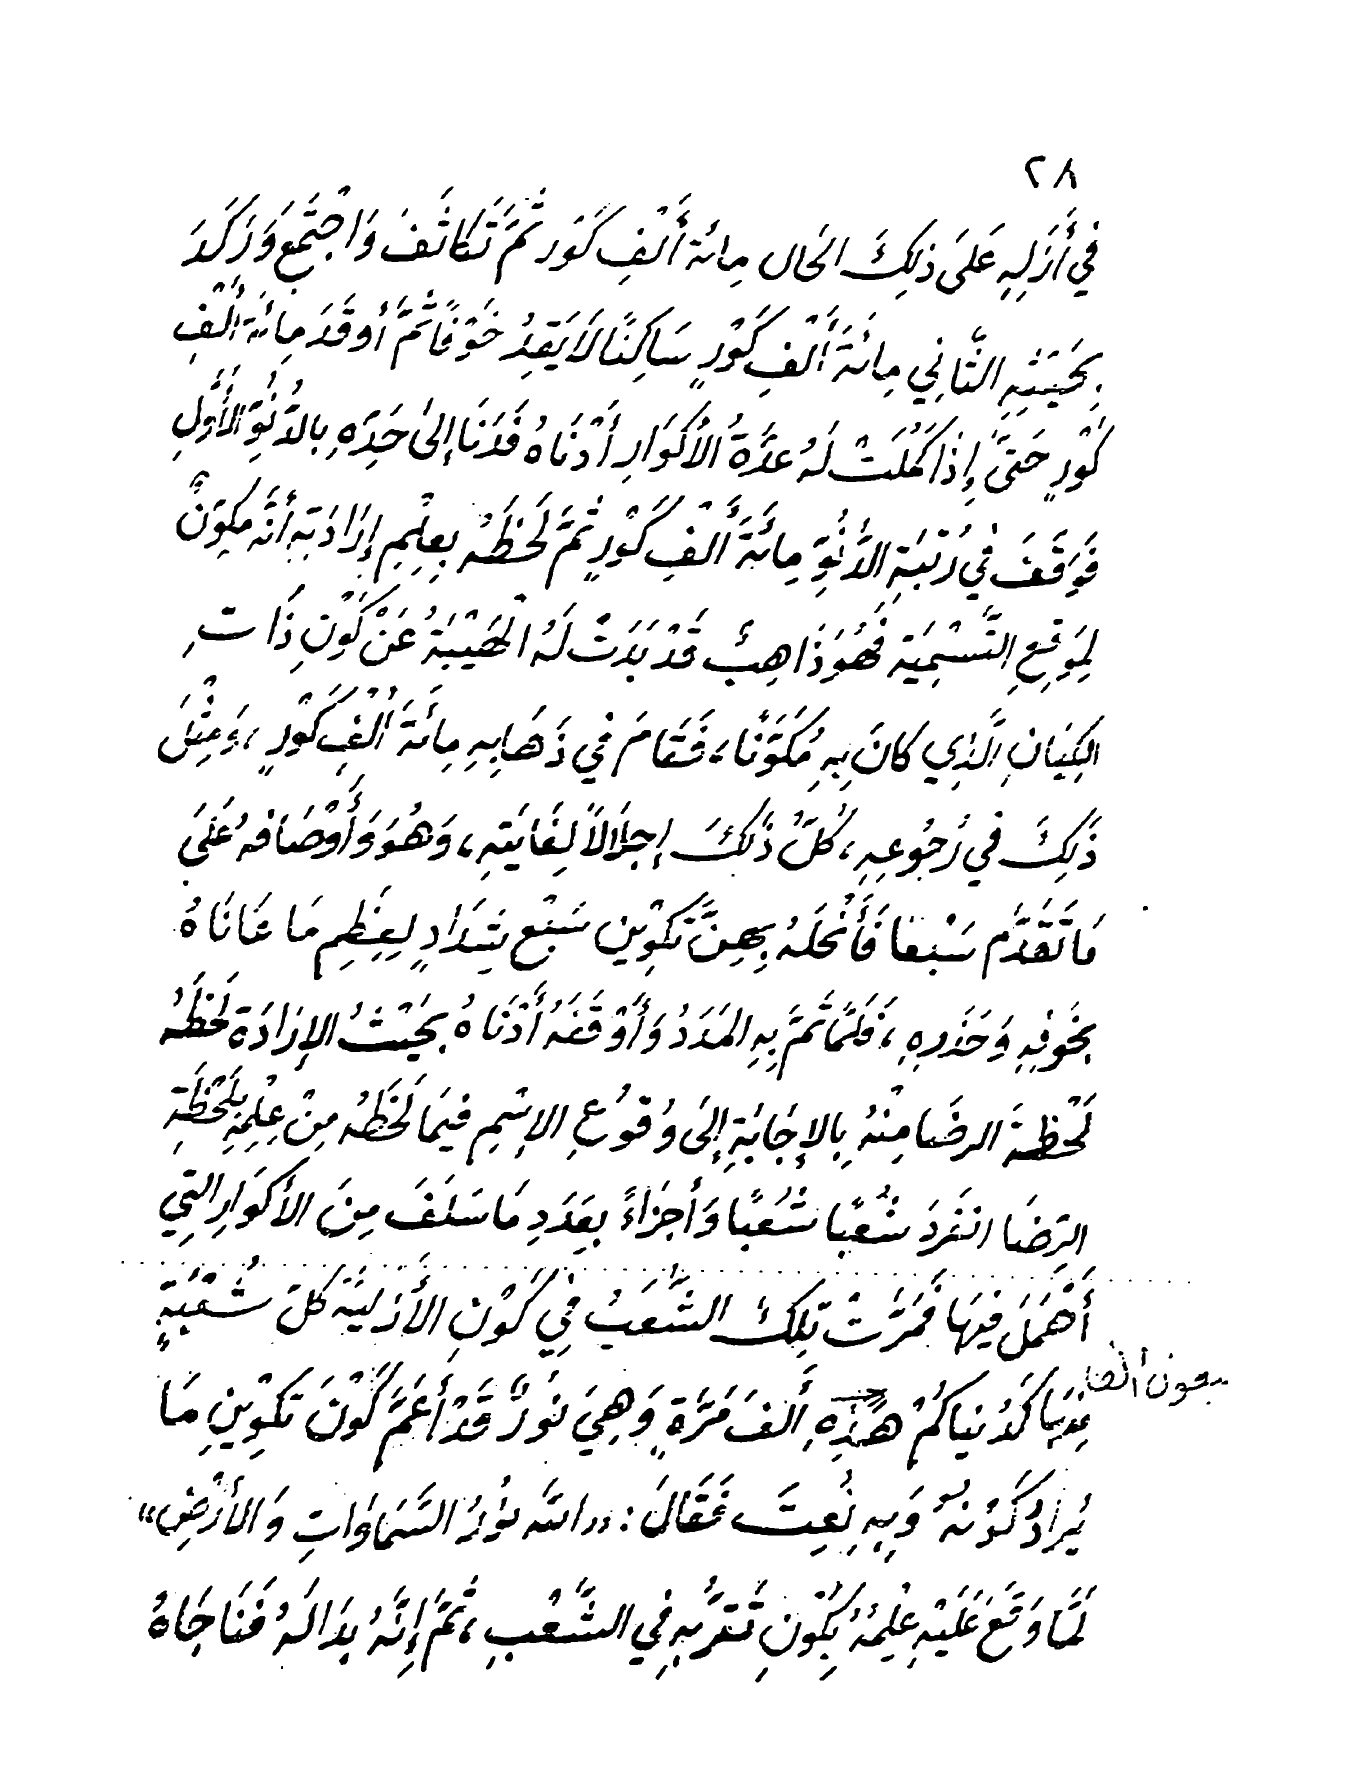 ٢٨
فِي أَزَلِهِ عَلَى ذلِكَ الحَال مِائة أَلْفِ كَوَر ثُمَّ تَكَاثَفَ وَاجْتَمَعَ وَرَكَدَ
بِحَيْثِهِ الثَّانِي مِائَةَ أَلْفِ كَوْرٍ سَاكِنًا لَا يَقِدُ خَوْفًا ثُمَّ أوقَدَ مِائة أَلْفِ
كَوْرٍ حَتَّى إِذَا كَمُلَتْ لَهُ عِدَّةُ الأَكوَارِ أَدْنَاهُ فَدَنَا إِلىٰ حَدِّهِ بِالدُّنُوِّ الأَوَّلِ
فَوَقَفَ فِي رُتْبَةِ الدُّنُوِّ مِائَةَ أَلْفِ كَوْرٍ ثُمَّ لَحَظَهُ بِعِلْمِ إِرَادَتِهِ أنَّه مكَوِّنٌ
لِمَوقِعِ التَّسْمِيَةِ فَهُوَ ذَاهِبٌ قَدْ بَدَتْ لَهُ الهَيْبَةُ عَنْ كَوْنِ ذَاتِ
الكِيَانِ الَّذِي كَانَ بِهِ مُكَوَّنًا، فَقَامَ فِي ذَهَابِهِ مِائَةَ أَلْفِ كَوْرٍ، وَمِثْلَ
ذَلِكَ فِي رُجُوعِهِ، كُلُّ ذَلكَ إِجلَالاً لِغَايَتِهِ، وَهُوَ وَأَوْصَافهُ عَلَى
مَا تَقَدَّم سَبْعا فَأَنْحَلَهُ بِهِنَّ تَكوِين سَبْع بِتَدَادٍ لِعِظَمِ مَا عَانَاهُ
بِخَوفِهِ وَحَذَرِهِ، فَلَمَّا تُمَّ بِهِ المَدَدُ وَأَوْقَفَهُ أَدْنَاهُ بِحَيْثُ الإِرَادَة لَحَظَهُ
لَحْظَةَ الرِضَا مِنْهُ بِالإِجَابَةِ إِلَى وُقوُعِ الإِسْمِ فِيمَا لَحَظَهُ مِنْ عِلْمِهِ بِلَحْظَةِ
الرِّضَا انفَرَدَ شُعَبًا شُعَبًا وَأَجزَاءً بِعَدَدِ مَا سَلَفَ مِنَ الأَكوَارِ التِي
أَهْمَلَ فِيهَا فَمَرَّتْ تِلكَ الشُّعَبُ فِي كَوْنِ الأَزَلِيَّة كلّ شُعْبَةٍ
سبعون ألفا
مِنهَا كَدُنياكُمْ هَذِهِ أَلفَ مَرَّةٍ وَهِيَ نُورٌ قَدْ أَعَمَّ كَوْنَ تَكوِينِ مَا
يُرادُ كَوْنهُ وَبِهِ نُعِتَ فَقَالَ: «اللَّه نُورُ السَّمَاوَاتِ وَالأَرْضِ»
لَمَّا وَقَعَ عَلَيْهِ عِلْمُهُ بِكَوْنِ تَقَرُّبِهِ فِي الشُّعْبِ، ثُمَّ إِنَّهُ بِدَا لَهُ فَنَاجَاهُ